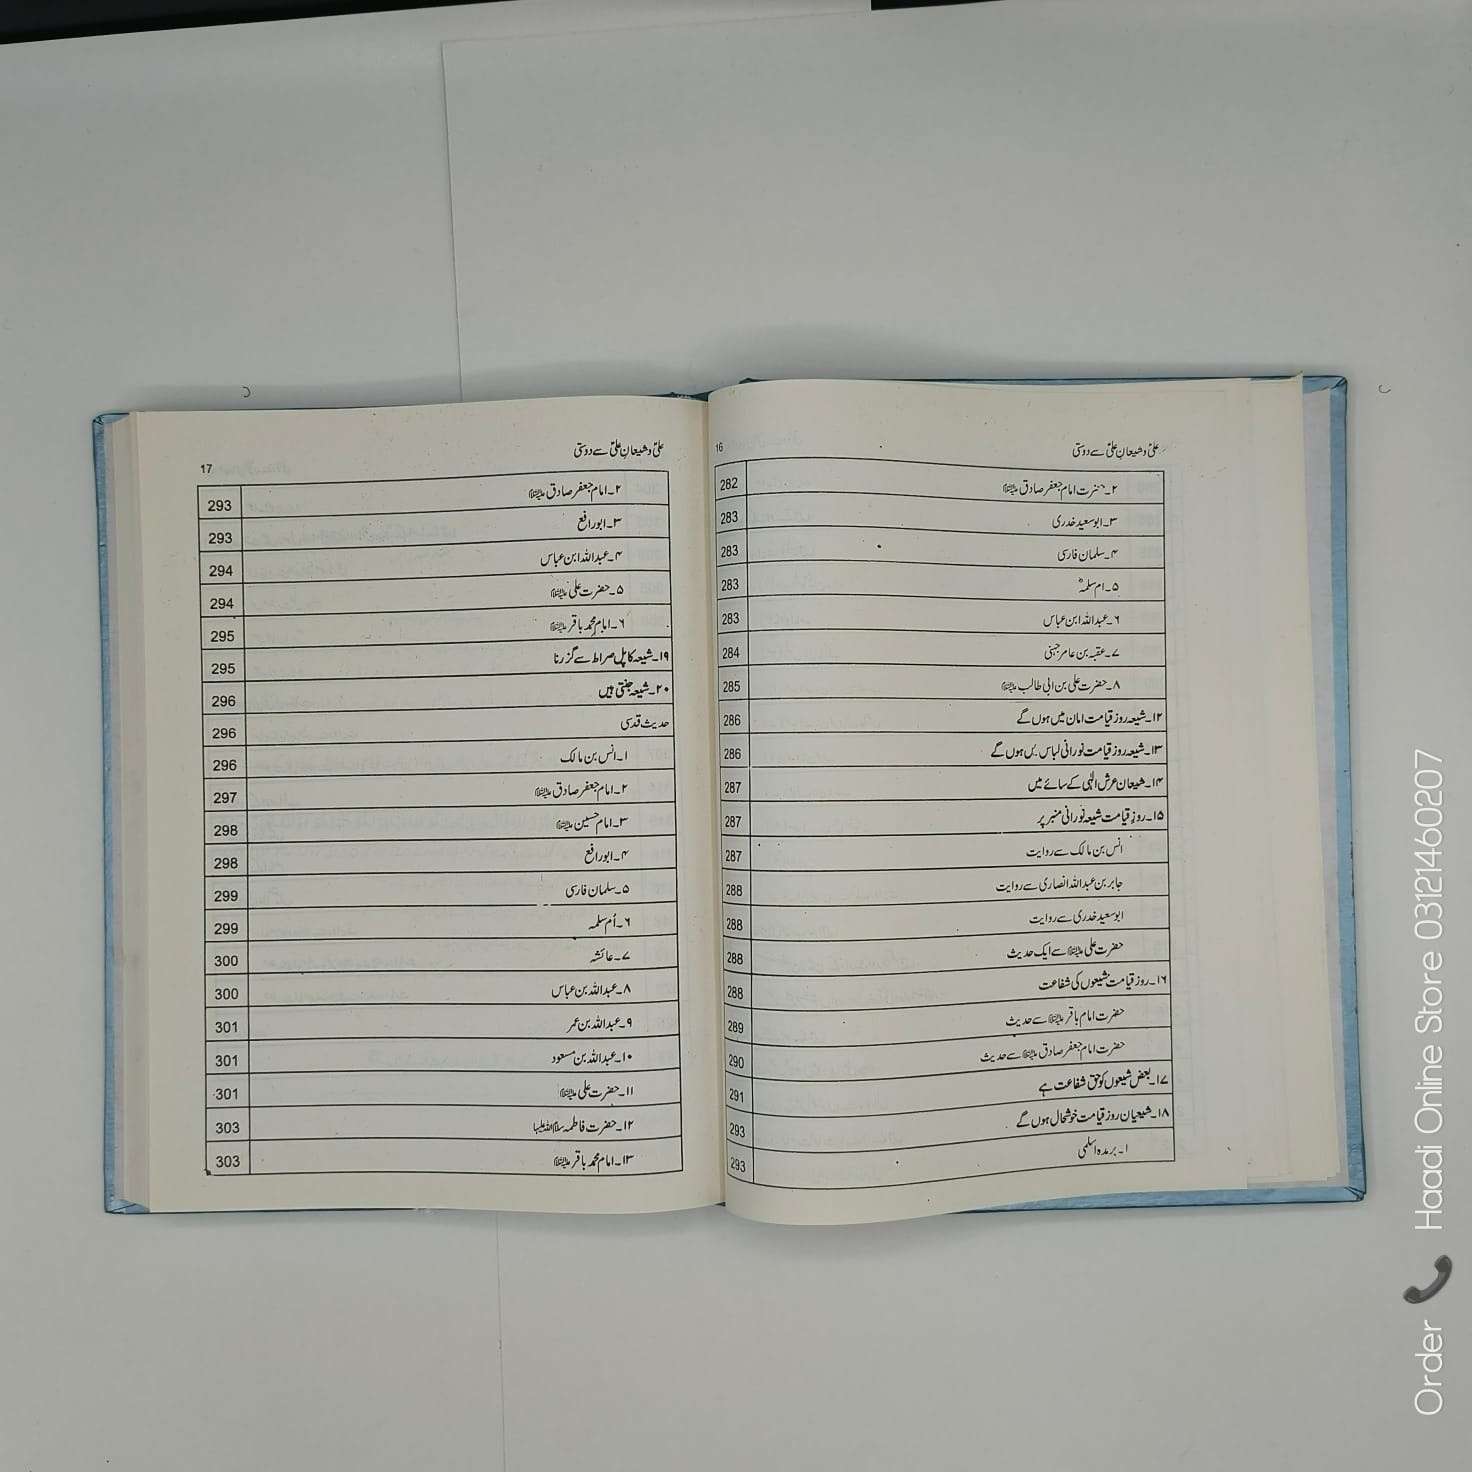 16
علیؑ و شیعانِ علیؑ سے دوستی
۲۔حضرت امام جعفر صادق علیہ السلام 282
۳۔ابوسعید خدری 283
۴۔سلمان فارسی 283
۵۔ام سلمہؓ 283
۶۔عبداللہ ابن عباس 283
۷۔عقبہ بن عامر جہنی 284
۸۔حضرت علی بن ابی طالب علیہ السلام 285
۱۲۔شیعہ روز قیامت امان میں ہوں گے 286
۱۳۔شیعہ روز قیامت نورانی لباس میں ہوں گے 286
۱۴۔شیعان عرش الٰہی کے سائے میں 287
۱۵۔روزِ قیامت شیعہ نورانی منبر پر 287
انس بن مالک سے روایت 287
جابر بن عبداللہ انصاری سے روایت 288
ابوسعید خدری سے روایت 288
حضرت علی علیہ السلام سے ایک حدیث 288
۱۶۔روز قیامت شیعوں کی شفاعت 288
حضرت امام باقر علیہ السلام سے حدیث 289
حضرت امام جعفر صادق علیہ السلام سے حدیث 290
۱۷۔بعض شیعوں کو حق شفاعت ہے 291
۱۸۔شیعیان روز قیامت خوشحال ہوں گے 293
۱۔بریدہ اسلمی 293
17
علیؑ و شیعانِ علیؑ سے دوستی
۲۔امام جعفر صادق علیہ السلام 293
۳۔ابورافع 293
۴۔عبداللہ ابن عباس 294
۵۔حضرت علی علیہ السلام 294
۶۔امام محمد باقر علیہ السلام 295
۱۹۔شیعہ کا پل صراط سے گزرنا 295
۲۰۔شیعہ جنتی ہیں 296
حدیث قدسی 296
۱۔انس بن مالک 296
۲۔امام جعفر صادق علیہ السلام 297
۳۔امام حسین علیہ السلام 298
۴۔ابورافع 298
۵۔سلمان فارسی 299
۶۔اُم سلمہ 299
۷۔عائشہ 300
۸۔عبداللہ بن عباس 300
۹۔عبداللہ بن عمر 301
۱۰۔عبداللہ بن مسعود 301
۱۱۔حضرت علی علیہ السلام 301
۱۲۔حضرت فاطمہ سلام اللہ علیہا 303
۱۳۔امام محمد باقر علیہ السلام 303
Order Haadi Online Store 03121460207